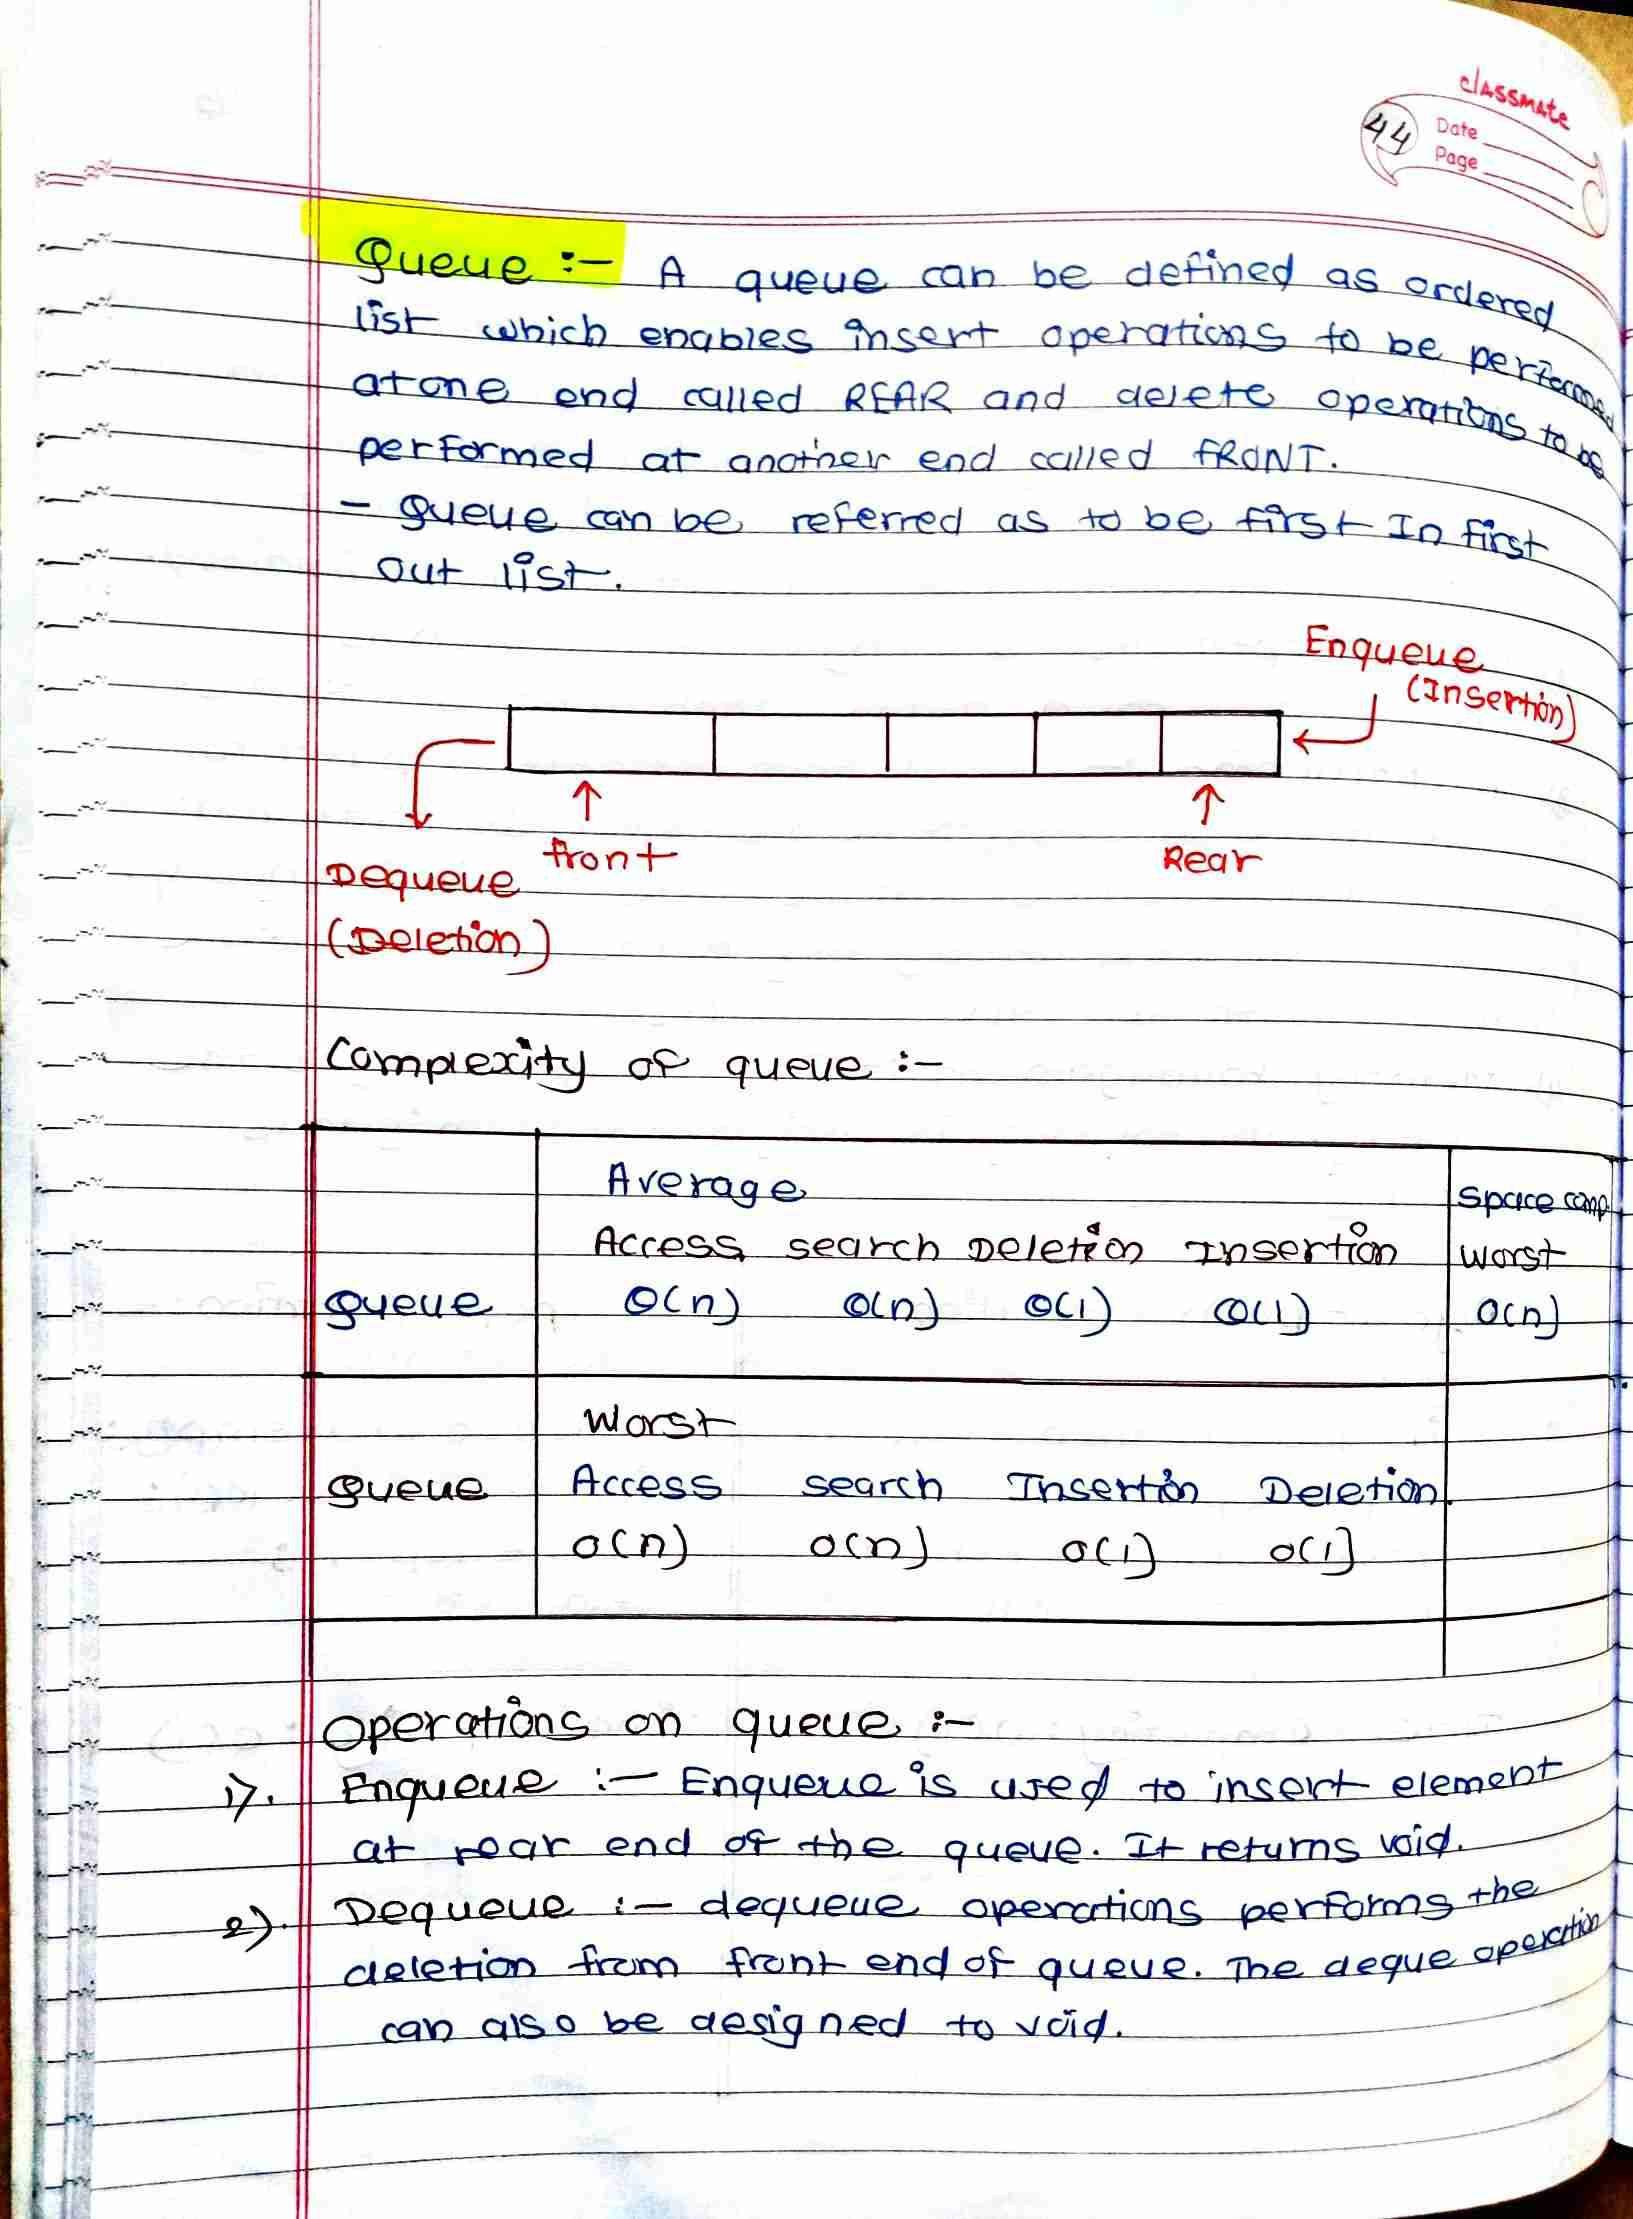 classmate
44
Date
Page
Queue :- A queue can be defined as ordered
list which enables insert operations to be performed
atone end called REAR and delete operations to be
performed at another end called FRONT.
- Queue can be referred as to be first In first
out list.
Enqueue
(Insertion)
front
Rear
Dequeue
(Deletion)
Complexity of queue :-
Average
Space comp
Access search Deletion Insertion
Worst
Queue Θ(n) Θ(n) Θ(1) Θ(1) O(n)
Worst
Queue Access search Insertion Deletion
O(n) O(n) O(1) O(1)
Operations on queue :-
1). Enqueue :- Enqueue is used to insert element
at rear end of the queue. It returns void.
2). Dequeue :- dequeue operations performs the
deletion from front end of queue. The deque operation
can also be designed to void.